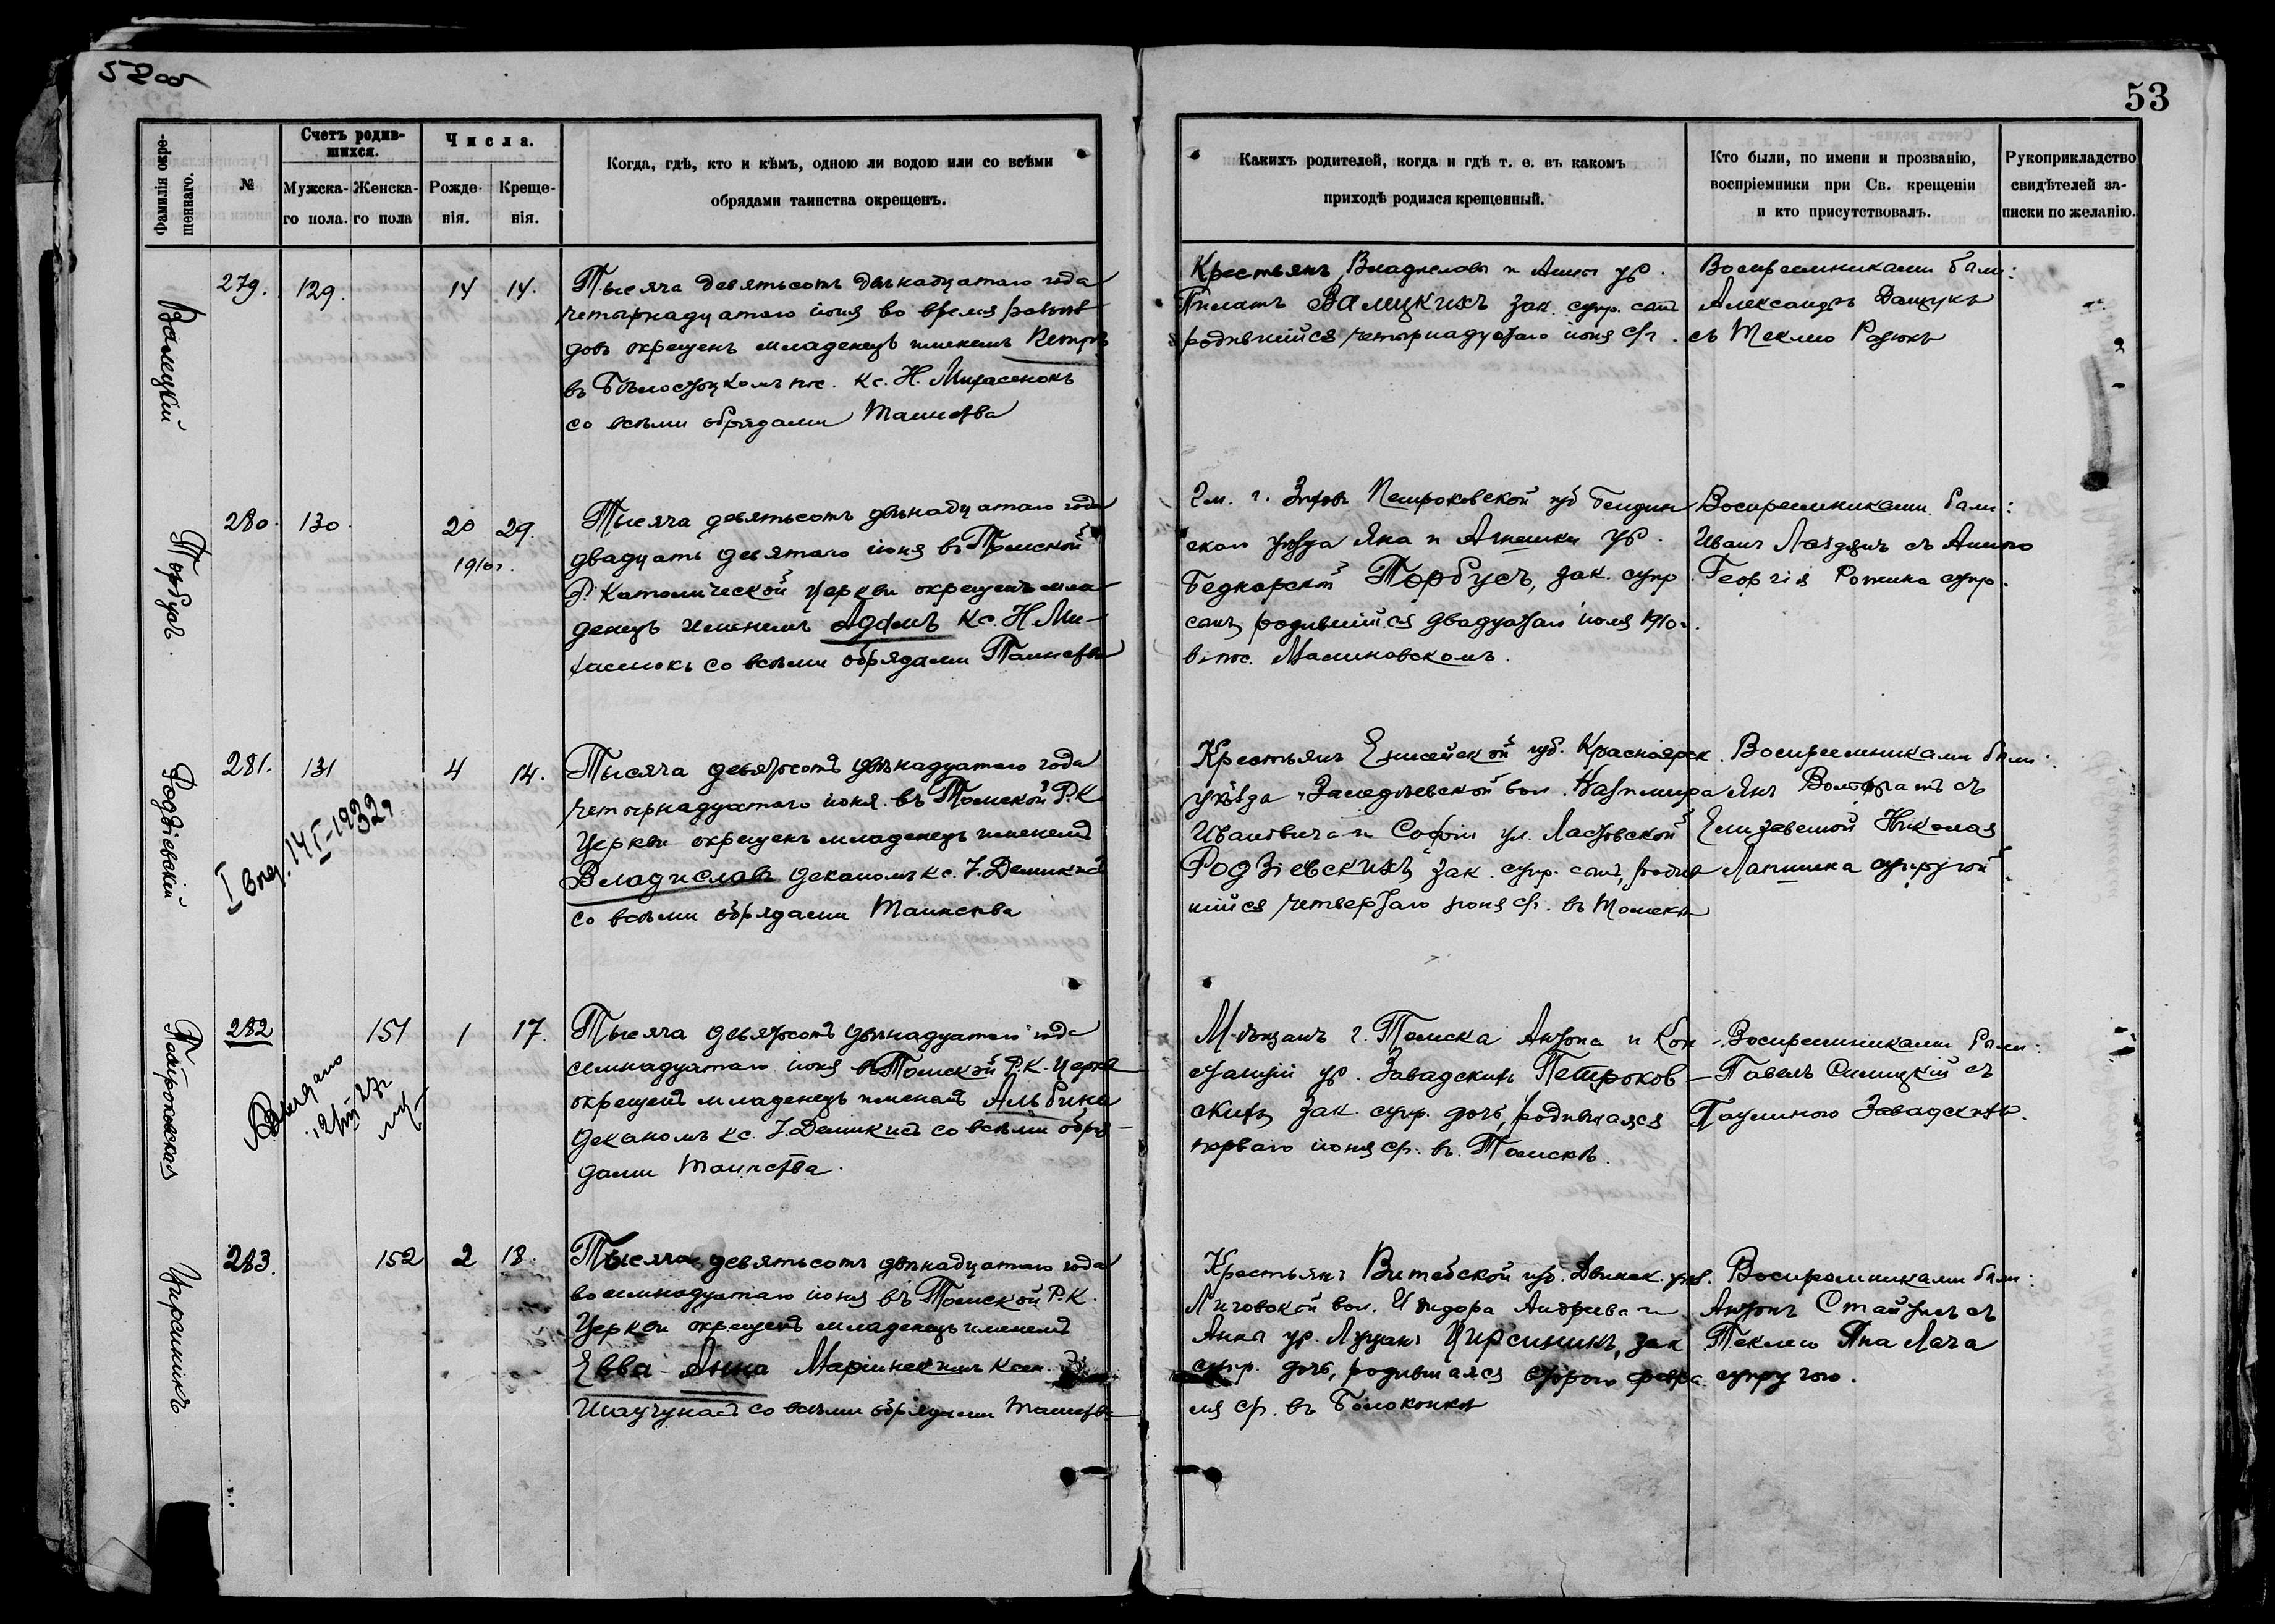 52об
53
Фамилія окре-
щеннаго.
№
Счетъ родив-
шихся.
Мужска-
го пола.
Женска-
го пола
Числа.
Рожде-
нія.
Креще-
нія.
Когда, гдѣ, кто и кѣмъ, одною ли водою или со всѣми
обрядами таинства окрещенъ.
Какихъ родителей, когда и гдѣ т. е. въ какомъ
приходѣ родился крещенный.
Кто были, по имени и прозванію,
воспріемники при Св. крещеніи
и кто присутствовалъ.
Рукоприкладство
свидѣтелей за-
писки по желанію.
Валецкій
279. 129. 14 14.
Тысяча девятьсотъ двѣнадцатаго года
четырнадцатаго іюня во время
довъ окрещенъ младенецъ именемъ Петръ
въ Бѣлостоцкомъ пос. Кс. Н. Михасенокъ
со всѣми обрядами Таинства
Крестьянъ Владислава и Анны ур.
Пилатъ Валицкихъ зак. супр. сынъ
родившійся четырнадцатаго іюня с/г.
Воспреемниками были:
Александръ Дацукъ
съ Теклею Радюкъ
Торбусъ.
280. 130. 20 29.
1910г.
Тысяча девятьсотъ двѣнадцатаго года
двадцать девятаго іюня въ Томской
Р. Католической Церкви окрещенъ мла-
денецъ именемъ Адамъ Кс. Н. Ми-
хасенокъ со всѣми обрядами Таинства
Гм. г. Петроковской губ Бендин
скаго уѣзда Яна и Агнешки ур.
Беднарской Торбусъ, зак. супр.
сынъ, родившійся двадцатаго іюня 1910г.
въ пос. Малиновскомъ.
Воспреемниками были:
Иванъ съ Анною
Георгія супр.
Родзіевскій
281. 131 4 14.
I выд. 14 I-1932г
Тысяча девятьсотъ двѣнадцатаго года
четырнадцатаго іюня въ Томской Р.К.
Церкви окрещенъ младенецъ именемъ
Владиславъ деканомъ кс. І. Демикисъ
со всѣми обрядами Таинства
Крестьянъ Енисейской губ. Красноярск.
уѣзда Заледѣевской вол. Казимира
Ивановича и Софіи ур. Ластовской
Родзіевскихъ, зак. супр. сынъ, родив
шійся четвертаго іюня с/г. въ Томскѣ
Воспреемниками были:
Янъ съ
Елизаветой Николая
Лапшина супругой.
Петроковская
282 151 1 17.
Выдано
12/III 27г
Тысяча девятьсотъ двѣнадцатаго года
семнадцатаго іюня въ Томской Р.К. Церкв
окрещенъ младенецъ именемъ Альбина
деканомъ кс. І. Демикисъ со всѣми обря-
дами Таинства.
Мѣщанъ г. Томска Антона и Кон-
станціи ур. Завадскихъ Петроков-
скихъ, зак. супр. дочь, родившаяся
перваго іюня с/г. въ Томскѣ.
Воспреемниками были:
Павелъ съ
Паулиною Завадскихъ.
Цирсиникъ
283. 152 2 18.
Тысяча девятьсотъ двѣнадцатаго года
восемнадцатаго іюня въ Томской Р.К.
Церкви окрещенъ младенецъ именемъ
Евва-Анна Маріинскимъ Ксен.
со всѣми обрядами Таинства
Крестьянъ Витебской губ. Двинск. уѣз.
вол. Изидора Андреева и
Анны ур. Луцанъ Цирсиникъ, зак
супр. дочь, родившаяся второго февра
ля с/г. въ
Воспреемниками были:
Антонъ съ
Теклею Яна Лача
супругою.